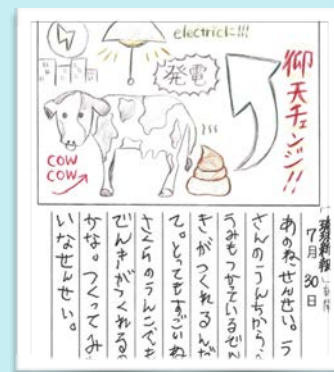 electricに!!!
発電
仰天チェンジ!!
COW
COW
琉球新報
7月30日
あのね、せんせい。う
さんのうんちから、
うみもつかているでん
きがつくれるんだ
て。とってもすごいね
さくらのうんこでも
でんきがつくれるの
かな。つくってみ
いなせんせい。